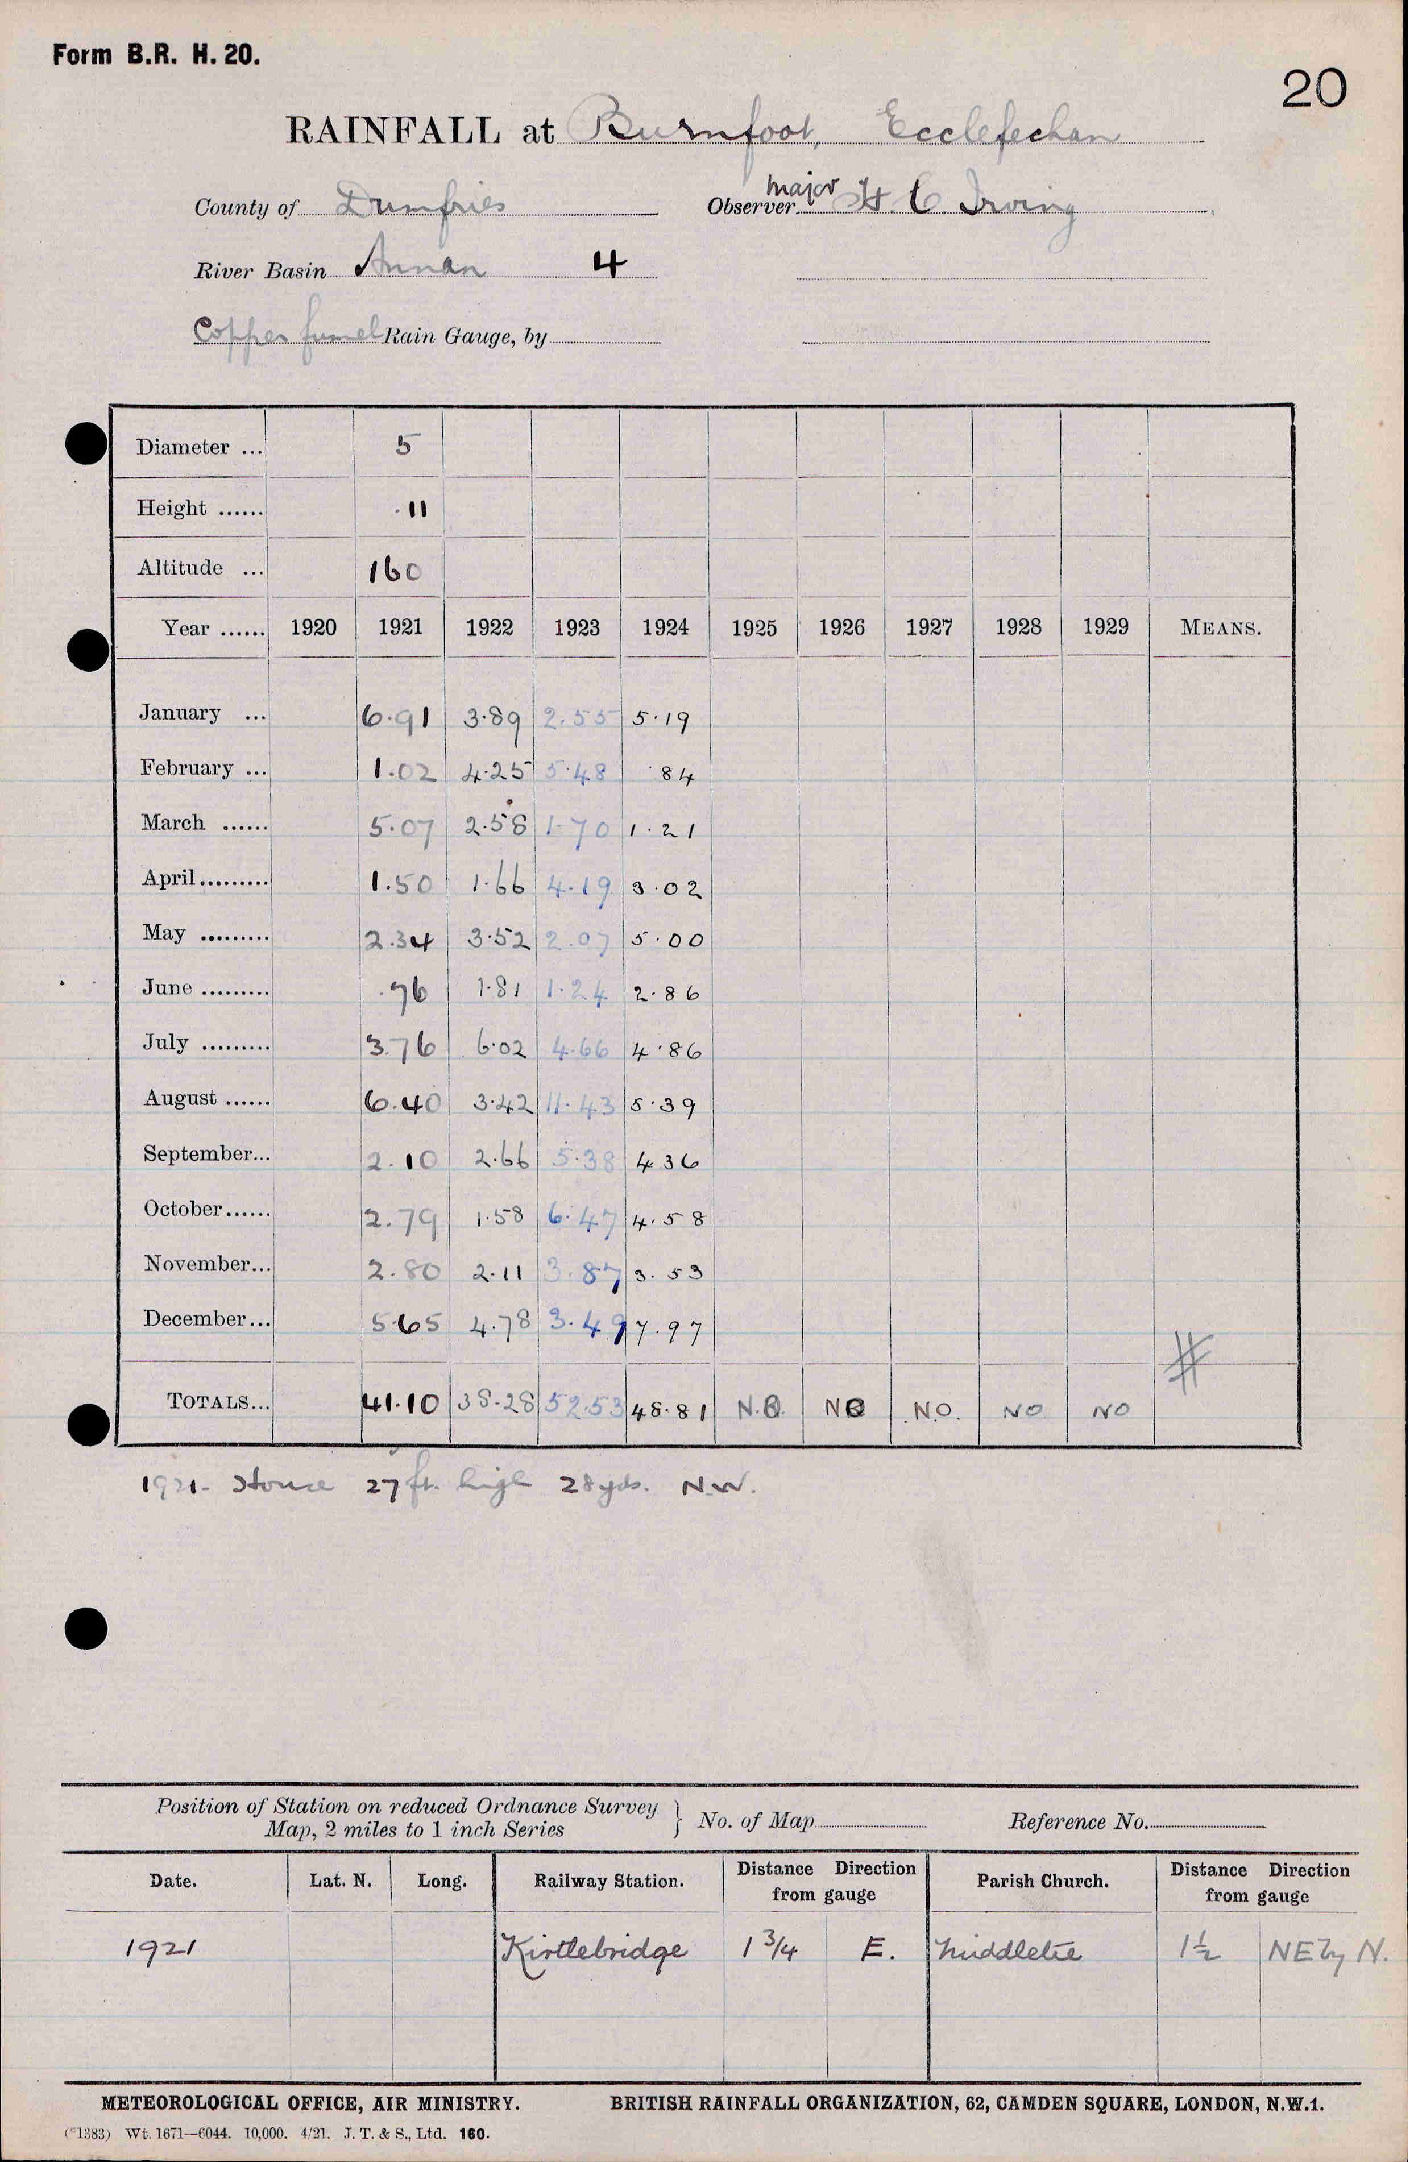 Form B.R. H. 20.
20
RAINFALL at Burnfoot, Ecclefechan
County of Dumfries Observer Major H C Irving
River Basin Annan 4
Copper funnel Rain Gauge, by
Diameter ... 5
Height ...... .11
Altitude ... 160
Year ...... 1920 1921 1922 1923 1924 1925 1926 1927 1928 1929 MEANS.
January ... 6.91 3.89 2.55 5.19
February ... 1.02 4.25 5.48 .84
March ...... 5.07 2.58 1.70 1.21
April ......... 1.50 1.66 4.19 3.02
May ......... 2.34 3.52 2.07 5.00
June ......... .76 1.81 1.24 2.86
July ......... 3.76 6.02 4.66 4.86
August ...... 6.40 3.42 11.43 5.39
September... 2.10 2.66 5.38 4.36
October...... 2.79 1.58 6.47 4.58
November... 2.80 2.11 3.87 3.53
December... 5.65 4.78 3.49 7.97
#
TOTALS... 41.10 38.28 52.53 48.81 N.O. NO N.O. NO NO
1921. House 27 ft. high 28 yds. N.W.
Position of Station on reduced Ordnance Survey
Map, 2 miles to 1 inch Series } No. of Map Reference No.
Date. Lat. N. Long. Railway Station. Distance Direction from gauge Parish Church. Distance Direction from gauge
1921 Kirtlebridge 1 3/4 E. Middlebie 1½ NE by N.
METEOROLOGICAL OFFICE, AIR MINISTRY. BRITISH RAINFALL ORGANIZATION, 62, CAMDEN SQUARE, LONDON, N.W.1.
(*1383) Wt. 1671—6044. 10,000. 4/21. J. T. & S., Ltd. 160.